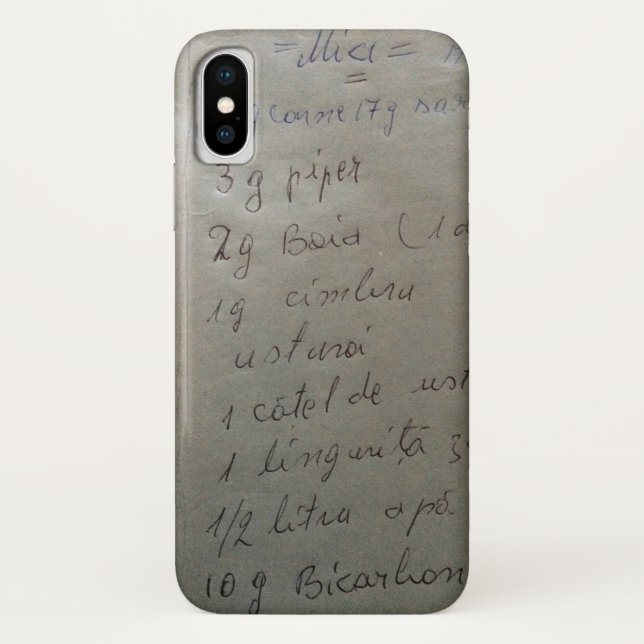 =Mici=
carne 17g sar
3g piper
2g Boia (1
1g cimbru
usturoi
1 cățel de ust
1 linguriță
1/2 litru apă
10g Bicarbon